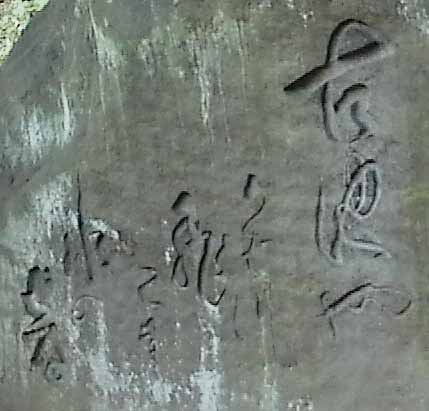 古池や
かはつ
飛
こむ
水の
音